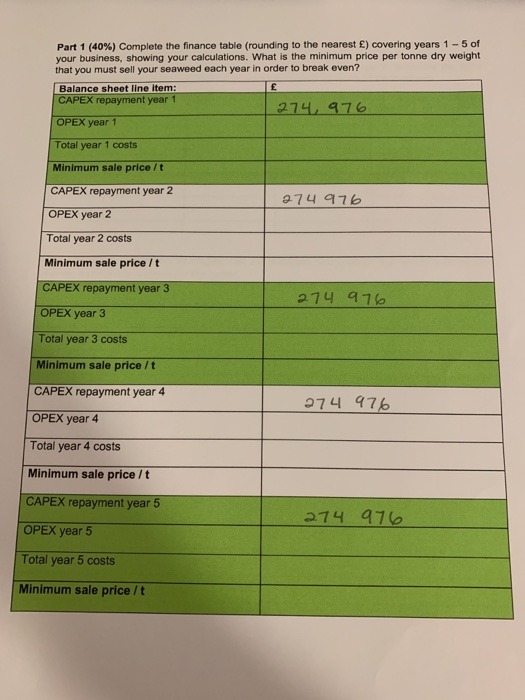 Part 1 (40%) Complete the finance table (rounding to the nearest £) covering years 1 – 5 of
your business, showing your calculations. What is the minimum price per tonne dry weight
that you must sell your seaweed each year in order to break even?
Balance sheet line item: £
CAPEX repayment year 1 274,976
OPEX year 1
Total year 1 costs
Minimum sale price / t
CAPEX repayment year 2 274 976
OPEX year 2
Total year 2 costs
Minimum sale price / t
CAPEX repayment year 3 274 976
OPEX year 3
Total year 3 costs
Minimum sale price / t
CAPEX repayment year 4 274 976
OPEX year 4
Total year 4 costs
Minimum sale price / t
CAPEX repayment year 5 274 976
OPEX year 5
Total year 5 costs
Minimum sale price / t